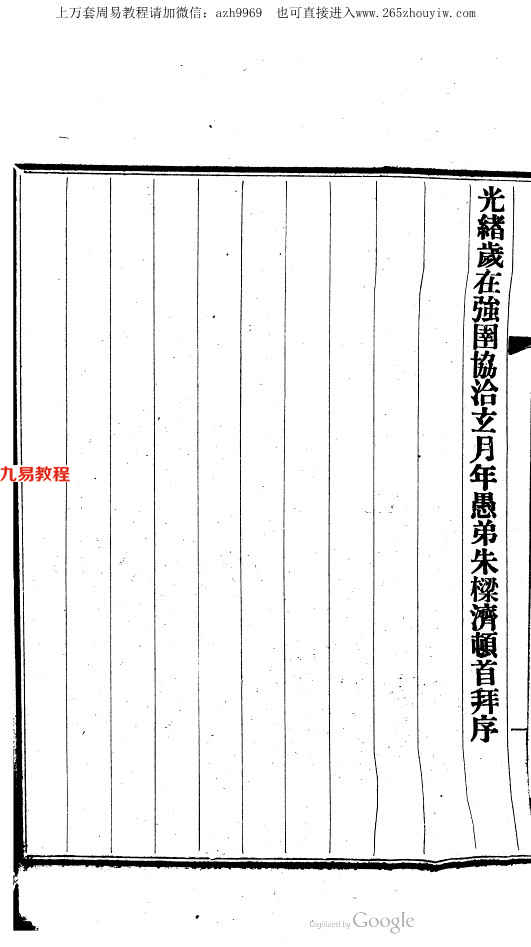 上万套周易教程请加微信：azh9969　也可直接进入www.265zhouyiw.com
光緒歲在強圉協洽玄月年愚弟朱樑濟頓首拜序
一
九易教程
Digitized by Google